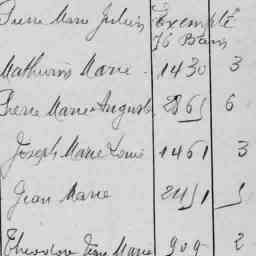 Pierre Marie Julien Exempté
76 Bain
Mathurin Marie . 1430 3
Pierre Marie Auguste 2865 6
Joseph Marie Louis 1461 3
Jean Marie 2451 5
Théodore Jean Marie 909 2